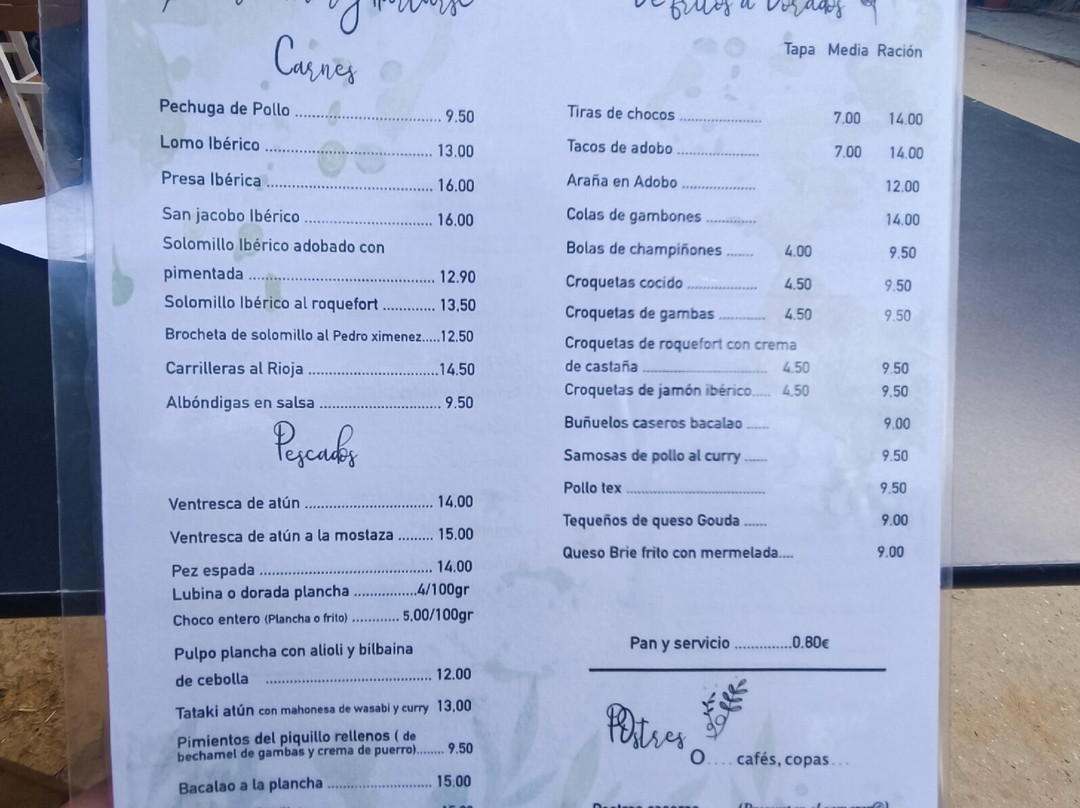 Carnes
Pechuga de Pollo .................................. 9.50
Lomo Ibérico ....................................... 13.00
Presa Ibérica ....................................... 16.00
San jacobo Ibérico .............................. 16.00
Solomillo Ibérico adobado con
pimentada ........................................... 12.90
Solomillo Ibérico al roquefort ............ 13,50
Brocheta de solomillo al Pedro ximenez.....12.50
Carrilleras al Rioja ..............................14.50
Albóndigas en salsa ............................ 9.50
Pescados
Ventresca de atún .............................. 14.00
Ventresca de atún a la mostaza ......... 15.00
Pez espada ........................................ 14.00
Lubina o dorada plancha ................4/100gr
Choco entero (Plancha o frito) ............ 5,00/100gr
Pulpo plancha con alioli y bilbaina
de cebolla ....................................... 12.00
Tataki atún con mahonesa de wasabi y curry 13,00
Pimientos del piquillo rellenos ( de
bechamel de gambas y crema de puerro)........ 9.50
Bacalao a la plancha ........................ 15.00
fritos a
Tapa Media Ración
Tiras de chocos ..................... 7.00 14.00
Tacos de adobo ..................... 7.00 14.00
Araña en Adobo ................... 12.00
Colas de gambones ............. 14.00
Bolas de champiñones ....... 4.00 9.50
Croquetas cocido .................. 4.50 9.50
Croquetas de gambas ............ 4.50 9.50
Croquetas de roquefort con crema
de castaña ............................... 4.50 9.50
Croquetas de jamón ibérico...... 4.50 9.50
Buñuelos caseros bacalao ...... 9.00
Samosas de pollo al curry ...... 9.50
Pollo tex ................................... 9.50
Tequeños de queso Gouda ...... 9.00
Queso Brie frito con mermelada.... 9.00
Pan y servicio ..............0.80€
POstres
O.... cafés, copas...